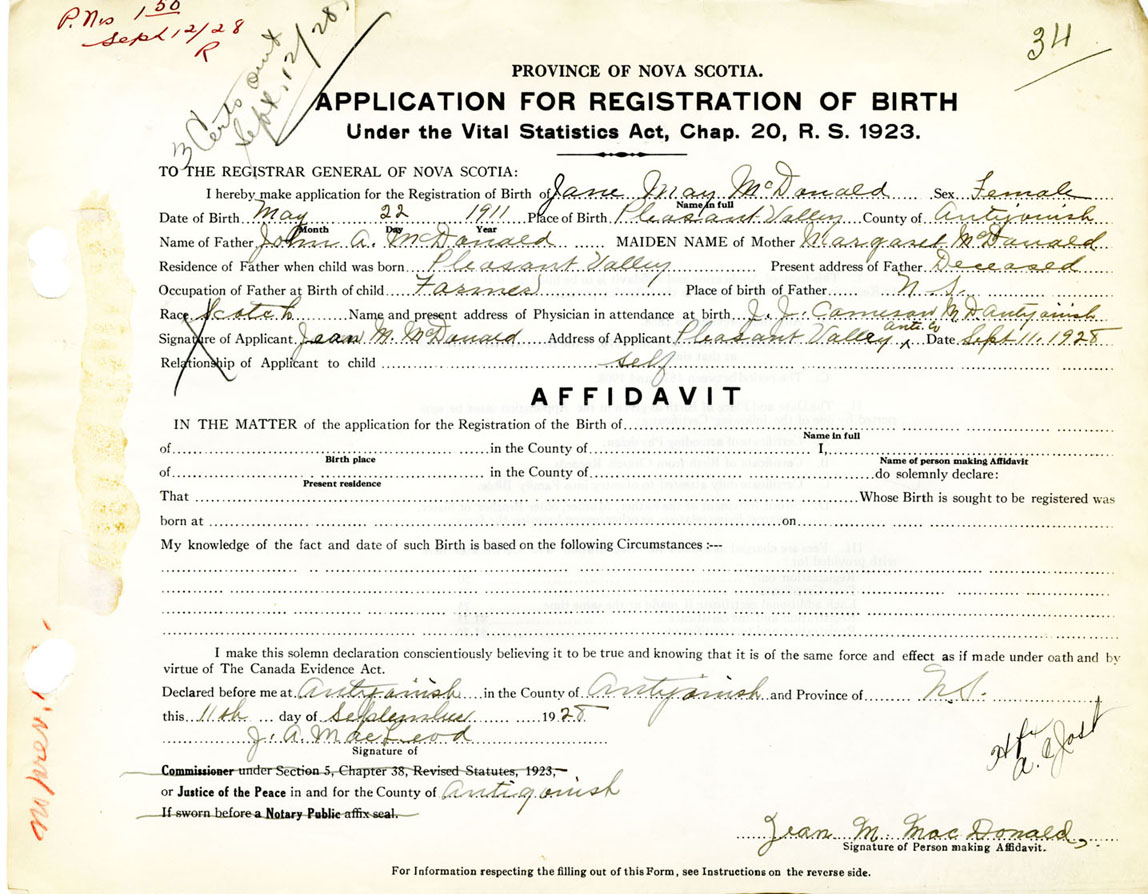 P. Nos 1 50
Sept 12/28
R
3 Certs out
Sept. 12/28.
34
PROVINCE OF NOVA SCOTIA.
APPLICATION FOR REGISTRATION OF BIRTH
Under the Vital Statistics Act, Chap. 20, R. S. 1923.
TO THE REGISTRAR GENERAL OF NOVA SCOTIA:
I hereby make application for the Registration of Birth of Jane May McDonald Sex Female
Name in full
Date of Birth May 22 1911 Place of Birth Pleasant Valley County of Antigonish
Month Day Year
Name of Father John A. McDonald MAIDEN NAME of Mother Margaret McDonald
Residence of Father when child was born Pleasant Valley Present address of Father Deceased
Occupation of Father at Birth of child Farmer Place of birth of Father N.S.
Race Scotch Name and present address of Physician in attendance at birth J. J. Cameron M D Antigonish
Signature of Applicant Jean M. McDonald Address of Applicant Pleasant Valley Ant. Co Date Sept 11, 1928
Relationship of Applicant to child self
AFFIDAVIT
IN THE MATTER of the application for the Registration of the Birth of
Name in full
of in the County of I,
Birth place Name of person making Affidavit
of in the County of do solemnly declare:
Present residence
That Whose Birth is sought to be registered was
born at on
My knowledge of the fact and date of such Birth is based on the following Circumstances :---
I make this solemn declaration conscientiously believing it to be true and knowing that it is of the same force and effect as if made under oath and by
virtue of The Canada Evidence Act.
Declared before me at Antigonish in the County of Antigonish and Province of N.S.
this 11th day of September 1928
J. A. MacLeod
Signature of
Commissioner under Section 5, Chapter 38, Revised Statutes, 1923,
or Justice of the Peace in and for the County of Antigonish
If sworn before a Notary Public affix seal.
A. E Jost
Jean M. MacDonald,
Signature of Person making Affidavit.
For Information respecting the filling out of this Form, see Instructions on the reverse side.